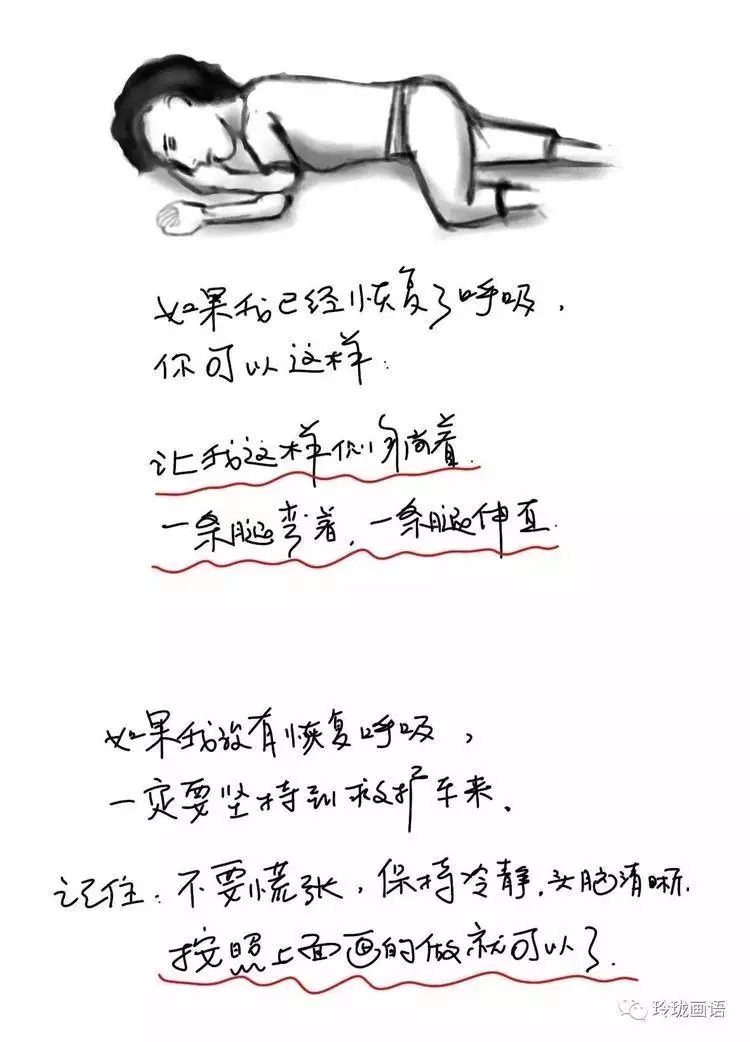 如果我已经恢复了呼吸，
你可以这样：
让我这样侧躺着
一条腿弯着，一条腿伸直.
如果我没有恢复呼吸，
一定要坚持到救护车来.
记住：不要慌张，保持冷静.头脑清晰.
按照上面画的做就可以了.
玲珑画语